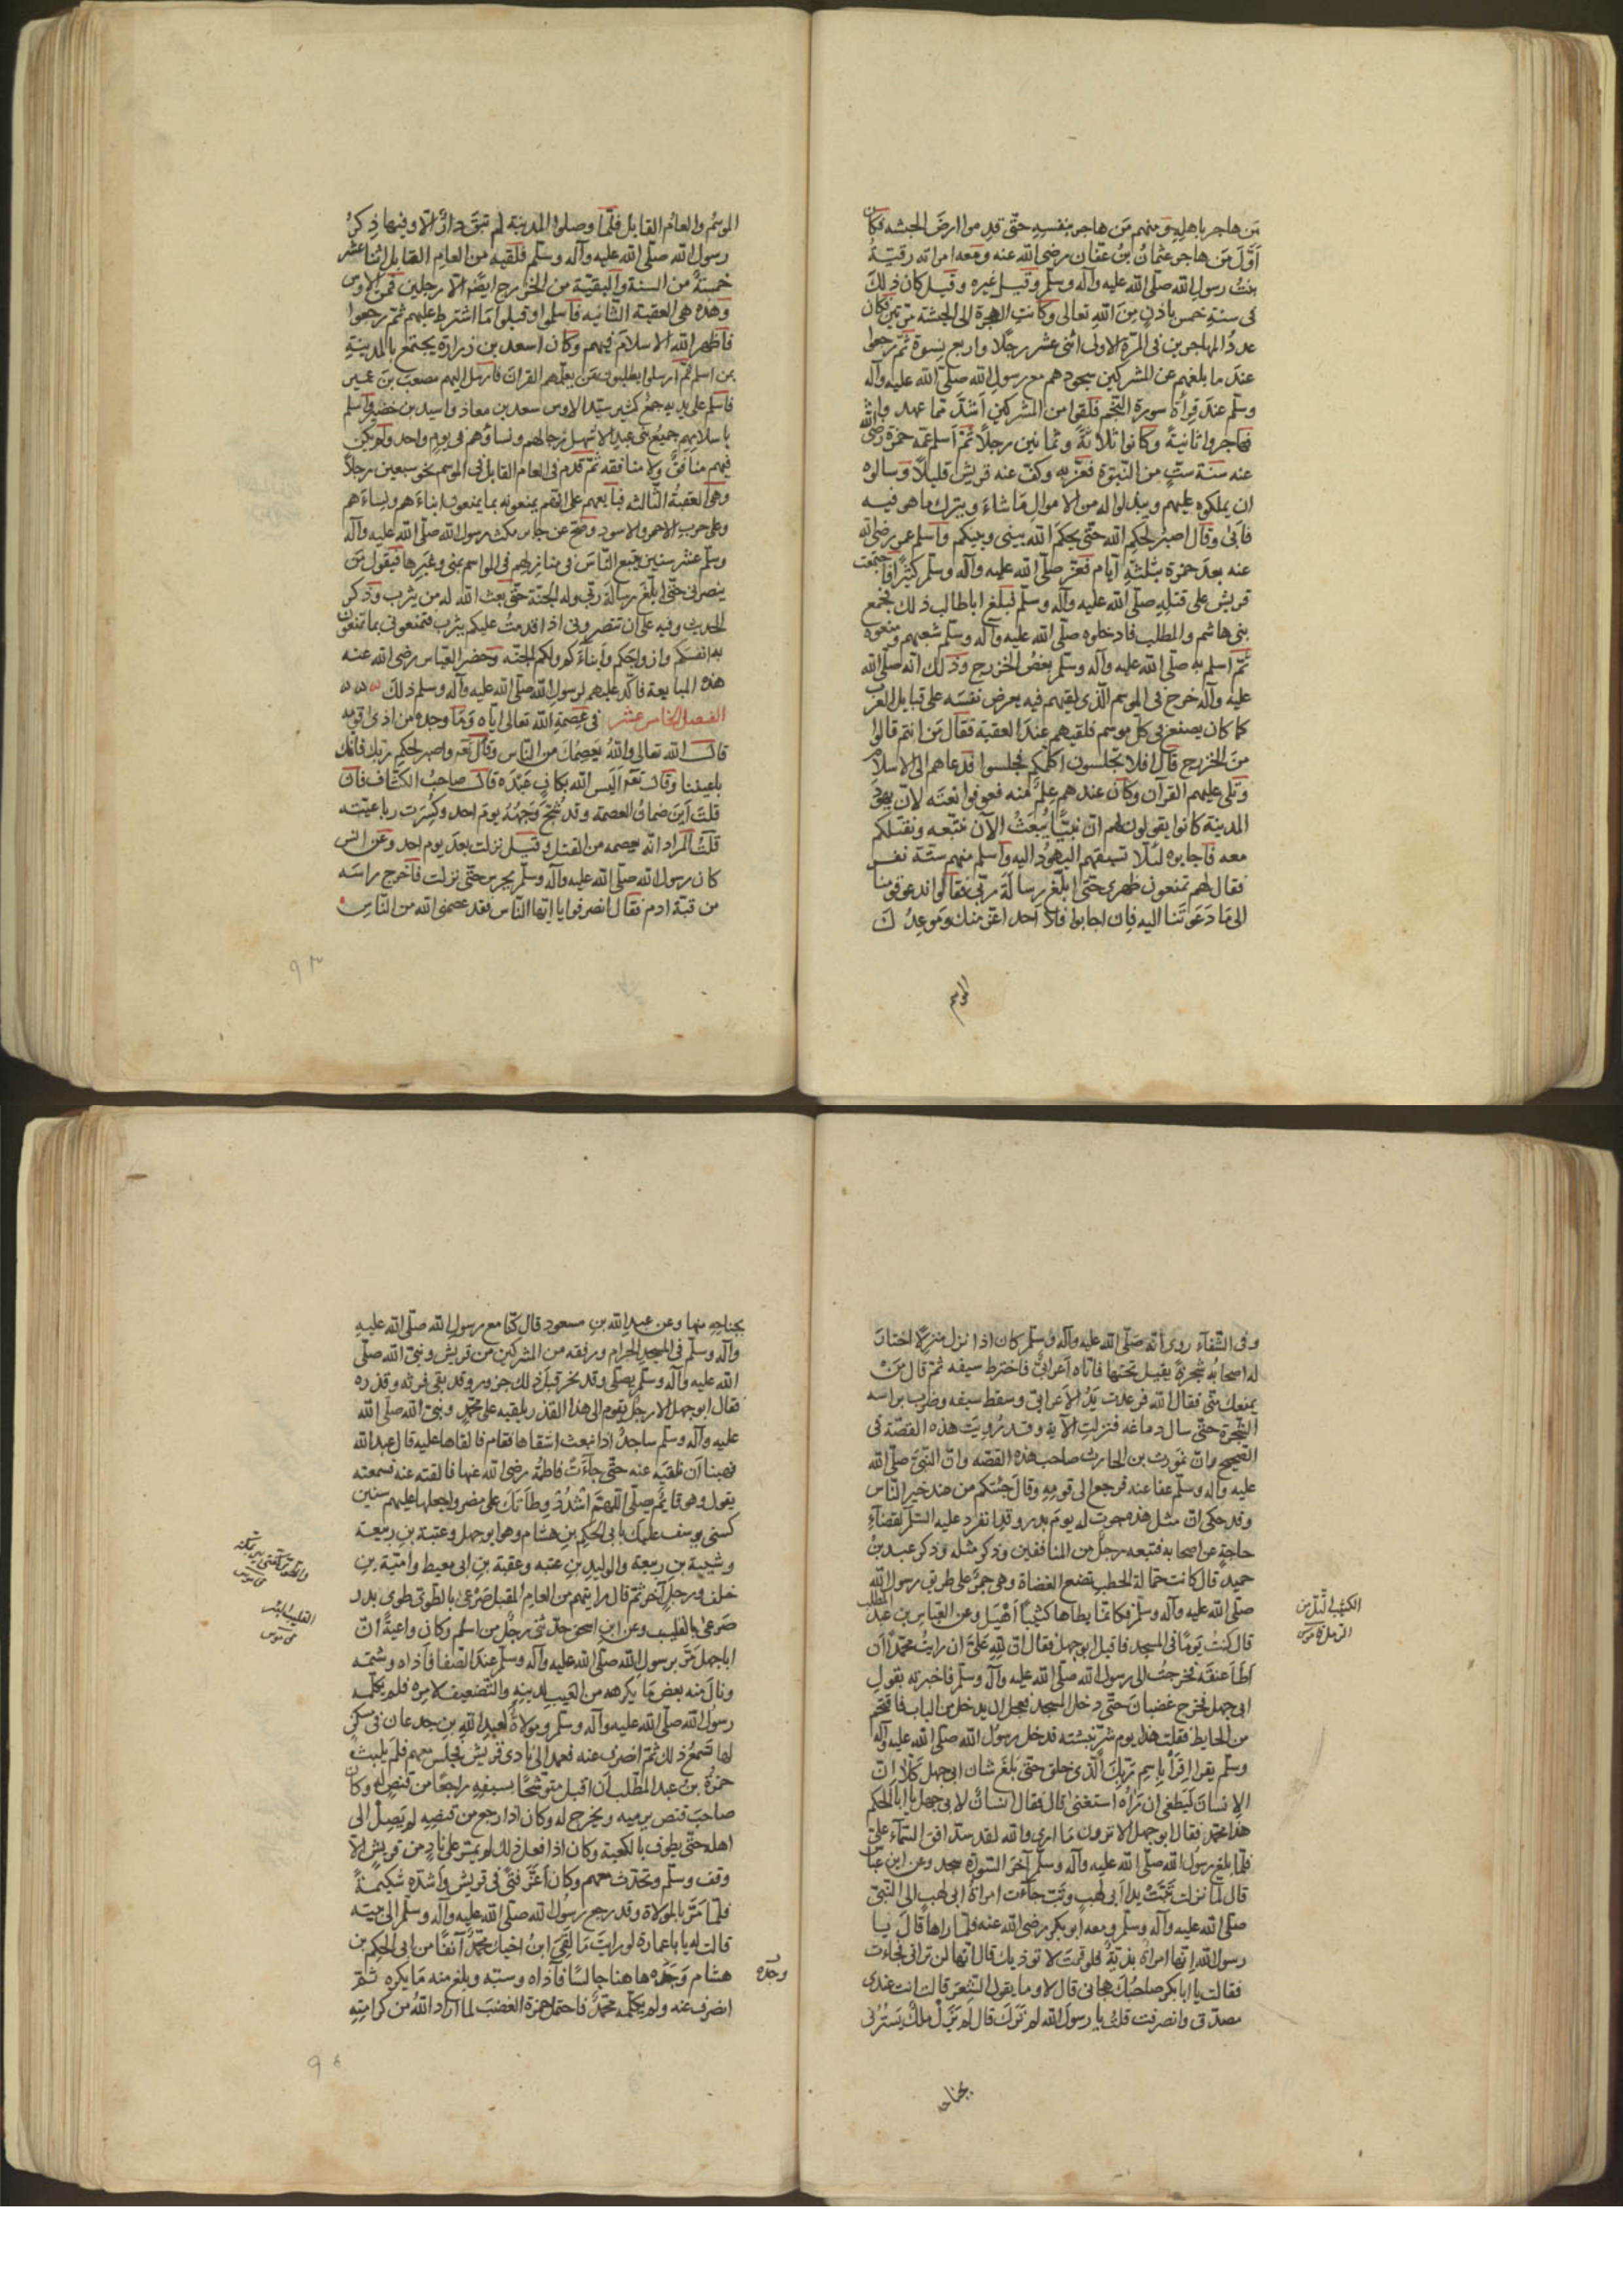 من هاجر باهلِهِ ومنهم مَن هاجر بنفسِهِ حتّى قدِم من ارضَ الحبشه فكان
اَوّلَ مَن هاجر عثمانُ بنُ عَفّان رضى الله عنه ومعه امراته رقيّةُ
بنتُ رسولِ الله صلّى الله عليه وآله وسلّم وقيل غيره وقيل كان ذلكَ
فى سنةِ خمس باذنٍ مِنَ اللهِ تعالى وكانتِ الهجرة الى الحبشة مرّتين فكان
عددُ المهاجرين فى المرّة الاولى اثنى عشر رجلًا واربع نِسوة ثمّ رجعوا
عندَ ما بلغهم عن المشركين سجودهم مع رسول الله صلّى الله عليه وآله
وسلّم عندَ قرأة سورة النجم فلقوا من المشركين اَشدَّ ممّا عهد واشدّ
فهاجروا ثانيةً وكانوا ثلاثةً وثمانين رجلًا ثمّ اَسلم عمّه حمزة رضى الله
عنه سَنة ستٍّ من النبّوة فعزّ به وكفّ عنه قريش قليلًا وسالوه
ان يملكوه عليهم ويبذلوا له من الاموال مَا شاءَ ويترك ما هو فيه
فاَبى وقال اصبرُ لحكمِ الله حتّى يحكمَ الله بينى وبينكم واَسلم عمر رضى الله
عنه بعدَ حمزة بثلثةِ ايّام فعَزّ صلّى الله عليه وآله وسلّم كثيرًا فاجتمعت
قريش على قتلِهِ صلّى الله عليه وآله وسلّم فبلغ اباطالب ذلك فجمع
بنى هاشم والمطلب فادخلوه صلّى الله عليه وآله وسلّم شعبهم ومنعوه
ثمّ اسلم به صلّى الله عليه وآله وسلّم بعضُ الخزرج وذلك انّه صلّى الله
عليه وآله خرج فى الموسم الّذى لقيهم فيه يعرض نفسَه على قبايل العرب
كما كان يصنع فى كلّ موسم فلقيهم عندَ العقبة فقال مَن انتم قالوا
منَ الخزرج قال افلا تجلسون اكلّمكم فجلسوا فدعاهم الى الاسلام
وتلى عليهم القرآن وكان عندهم عِلم منه فعرفوا نعتَه لانّ يهودَ
المدينة كانوا يقولون لهم انّ نبيًّا يُبعَثُ الآن نتّبعه ونقتلكم
معه فاجابوه لئلا تسبقهم اليهودُ اليه واسلم منهم ستّة نفر
فقال لهم تمنعون ظهرى حتّى ابلّغ رسالةَ ربّى فقالوا ندعو قومنا
الى مَا دَعَوتَنا اليه فان اجابوا فلا اَحد اعزّ منك وموعِدُكَ
الموسم
الموسُم والعامُ القابل فلمّا وصلوا المدينة لم تبقَ دارٌ الّا وفيها ذِكرُ
رسولِ الله صلّى الله عليه وآله وسلّم فلقيه من العامِ القابل اثنا عشر
خمسةٌ من الستة والبقيّة من الخزرج ايضًا الا رجلين فمن الاوس
وهذه هى العقبة الثّانيه فاسلموا وقبلوا مَا اشترط عليهم ثمّ رجعوا
فاظهر الله الاسلامَ فيهم وكان اسعد بن زرارة يجتمع بالمدينةِ
بمن اسلم ثمّ ارسلوا يطلبون مَن يعلّمهم القرانَ فارسَل اليهم مصعبَ بنَ عمير
فاسلم على يديه جمعٌ كثير سيّد الاوس سعد بن معاذ واسيد بن حضير واسلم
باسلامهم جميعُ بنى عبد الاشهل رجالهم ونساؤهم فى يومٍ واحد ولم يكن
فيهم منافقٌ ولا منافقه ثمّ قدم فى العام القابل فى الموسم نحو سبعين رجلًا
وهى العقبةُ الثّالثه فبايعهم على انّهم يمنعونه بما يمنعون ابناءَهم ونساءَهم
وعلى حرب الاحمر والاسود وصحّ عن جابر مكث رسول الله صلّى الله عليه وآله
وسلّم عشر سنين يتبع النّاسَ فى منازلهم فى المواسم بمنى وغيرها فيقول مَن
ينصرنى حتّى ابلّغ رسالةَ ربّى وله الجنّة حتّى بعث الله له من يثرب وذكر
الحديث وفيه على اَن تنصرونى اذا قدمتُ عليكم يثرب فتمنعونى بما تمنعون
به انفسَكم وازواجَكم واَبناءَكم ولكم الجنّه وحضر العبّاس رضى الله عنه
هذه المبايعة فاكّد عليهم لرسولِ الله صلّى الله عليه وآله وسلم ذلك
الفصل الخامس عشر فى عِصمةِ الله تعالى ايّاه ومَا وجده من اذى قومه
قال الله تعالى واللهُ يَعصِمُكَ من النّاس وقال تع واصبر لحكمِ ربّك فانّك
باعيننا وقال تعَ اَلَيس الله بكافٍ عَبْدَه قال صاحبُ الكشّاف فان
قلتَ اَينَ ضمانُ العصمه وقد شُجّ وَجهُهُ يومَ احد وكُسرت رباعيّته
قلتُ المراد انّه يعصمه من القتل وقيل نزلت بعدَ يوم احد وعن انس
كان رسول الله صلّى الله عليه وآله وسلّم يحرس حتّى نزلت فاَخرج راسَه
من قبّة ادم فقال انصرفوا يا ايّها النّاس فقد عصمنى الله من النّاس
٩٣
وفى الشّفآء روى انّه صَلّى الله عليه وآله وسلّم كان اذا نزل منزلًا اختارَ
له اصحابُه شجرةً يقيل تحتها فاتاه اَعرابىٌّ فاخترط سيفه ثمّ قال مَن
يمنعك منّى فقال الله فرعدت يَدُ الاعرابى وسقط سيفه وضرب براسه
الشّجرة حتّى سال دماغه فنزلت الآية وقد رُوِيَت هذه القصّة فى
الصّحيح وانّ غورث بن الحارث صاحب هذه القصّه وانّ النّبىّ صلّى الله
عليه وآله وسلّم عفا عنه فرجع الى قومِه وقال جئتكم من عند خير النّاس
وقد حكى انّ مثل هذه جرت له يومَ بدر وقد انفرد عليه السّلم لقضآءِ
حاجةٍ عن اصحابه فتبعه رجلٌ من المنافقين وذكر مثله وذكر عبد بنُ
حميد قال كانت حمّالة الحطب تضع العضاة وهى جمرٌ على طريق رسول الله
صلّى الله عليه وآله وسلّم فكانّما يطاها كثيبًا اَهْيَل وعن العبّاس بن عبد المطّلب
قال كنتُ يَومًا فى المسجد فاقبل ابوجهل فقال انّ لِلّهِ علىّ ان رايتُ محمّدًا اَن
اَطَأ عنقَه فخرجتُ الى رسول الله صلّى الله عليه وآله وسلّم فاخبرته بقولِ
ابى جهل فخرج غضبانَ حتّى دخل المسجد فعجل ان يدخل من الباب فاقتحم
من الحايط فقلت هذا يوم شرّ فدخل رسولُ الله صلّى الله عليه وآله
وسلّم يقرا اِقرَأ بِاِسمِ رَبِّكَ الّذى خلق حتّى بلغَ شان ابى جهل كَلّا انّ
الِانسانَ لَيَطغى ان رَآهُ استغنى قال فقال انسانٌ لابى جهل يا ابا الحكم
هذا محمّد فقال ابوجهل الا ترون مَا ارى والله لقد سدّ افق السّمآء علىّ
فلمّا بلغ رسولُ الله صلّى الله عليه وآله وسلّم آخرَ السّورة سجد وعن ابن عبّاس
قال لمّا نزلت تَبّتْ يدا اَبى لهبٍ وتبّ جآءت امراةُ ابى لهب الى النّبىّ
صلّى الله عليه وآله وسلّم ومعه ابوبكر رضى الله عنه فلمّا راها قالَ يا
رسولَ الله انّها امراةٌ بذيّةٌ فلو قمتَ لا توذيك قال انّها لن ترانى فجاءت
فقالت يا ابابكر صاحبُك هجانى قال لا وما يقول الشِّعر قالت انت عندى
مصدّق وانصرفت قلتُ يا رسولَ الله لم تَرَكَ قال لم يَزَل ملكٌ يَستُرُنى
الكثيب التّل من
الرمل قاموس
بجناحه
بجناحِهِ منها وعن عبدِ الله بنِ مسعود قال كنّا مع رسولِ الله صلّى الله عليهِ
وآله وسلّم فى المسجدِ الحرام ورفقه من المشركين من قريش ونبىّ الله صلّى
الله عليه وآله وسلّم يصلّى وقد نحر قبل ذلك جزور وقد بقى فرثه وقذره
فقال ابوجهل الا رجلٌ يقوم الى هذا القذر يلقيه على محمّدٍ ونبىّ الله صلّى الله
عليه وآله وسلّم ساجدٌ اذ انبعث اشقاها فقام فالقاها عليه قال عبد الله
فهبنا اَن نلقيَه عنه حتّى جآءَت فاطمةُ رضى الله عنها فالقته عنه فسمعته
يقول وهو قايمٌ يصلّى اللّهمّ اشْدُدْ وطأتَك على مضر واجعلها عليهم سنين
كسنى يوسف عليك بابى الحكم بن هشام وهو ابوجهل وعتبة بن ربيعة
وشيبة بن ربيعة والوليد بن عتبه وعقبة بنِ ابى معيط وامّية بنِ
خلف ورجلٍ آخر ثمّ قال رايتهم من العام المقبل صَرْعى بالطّوىّ طوى بدر
صَرعى بالقليب وعن ابنِ اسحق حدّثنى رجلٌ من اسلم وكان واعيةً انّ
اباجهل مَرّ برسولِ الله صلّى الله عليه وآله وسلّم عندَ الصّفا فآذاه وشتمَه
ونالَ منه بعضَ مَا يكرهه من العَيبِ لدينِهِ والتّضعيف لامره فلم يكلّمه
رسولُ الله صلّى الله عليه وآله وسلّم ومولاةٌ لعبدِ اللهِ بنِ جدعان فى مسكنٍ
لها تَسمعُ ذلك ثمّ انصرف عنه فعمد الى نادى قريش فجلس معهم فلَم يلبثْ
حمزةُ بن عبدِ المطّلب اَن اقبل متوشّحًا بسيفِهِ راجعًا من قنصٍ له وكان
صاحبَ قنص يرميه ويخرج له وكان اذا رجع من قنصِه لم يَصِلْ الى
اهله حتّى يطوف بالكعبة وكان اذا فعل ذلك لم يمرّ على نادٍ من قريش الّا
وقف وسلّم وتحدّث معهم وكان اَعَزّ فتًى فى قريش واَشدّه شكيمةً
فلمّا مَرّ بالمولاة وقد رجع رسولُ الله صلّى الله عليه وآله وسلّم الى بيته
قالت له يا باعمارة لو رايتَ مَا لَقِىَ ابنُ اخيك محمّدٌ آنفًا من ابى الحكم بن
هشام وَجَدَه هاهنا جالسًا فآذاه وسبّه وبلغ منه مَا يكره ثمّ
انصرف عنه ولم يكلّمه محمّدٌ فاحتمل حمزةَ الغضبَ لما اَرادَ اللهُ من كرامتِهِ
القليب البئر
قاموس
وجده
٩٤